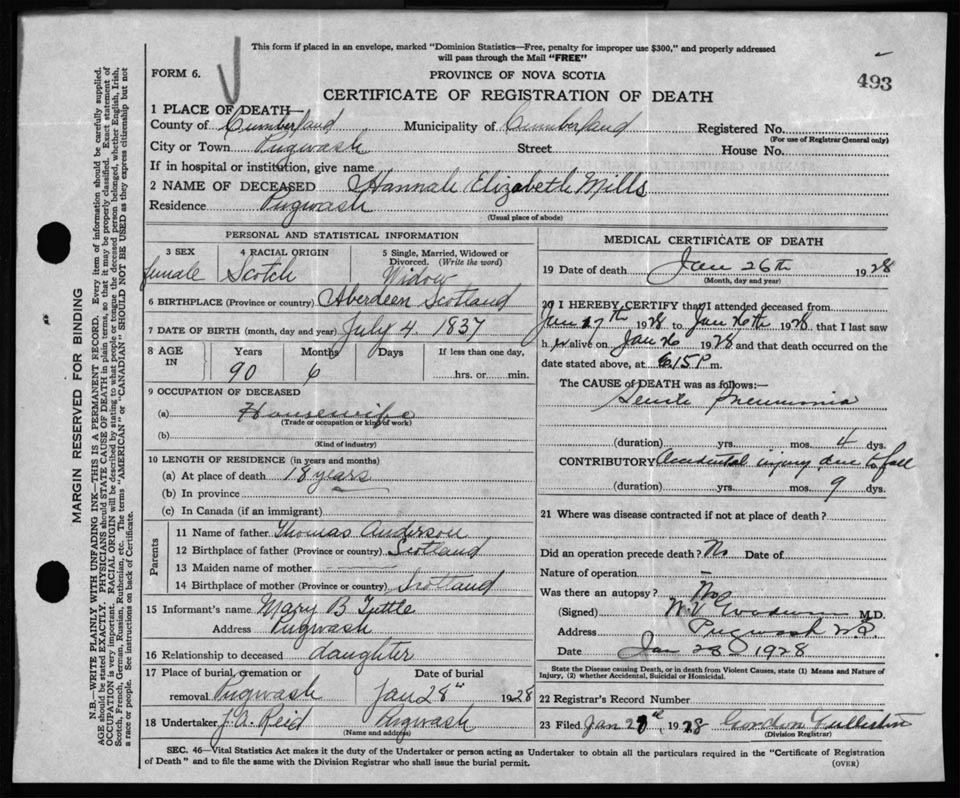 This form if placed in an envelope, marked "Dominion Statistics—Free, penalty for improper use $300," and properly addressed
will pass through the Mail "FREE"
FORM 6.
PROVINCE OF NOVA SCOTIA
493
CERTIFICATE OF REGISTRATION OF DEATH
1 PLACE OF DEATH—
County of Cumberland Municipality of Cumberland Registered No.
(For use of Registrar General only)
City or Town Pugwash Street House No.
If in hospital or institution, give name
2 NAME OF DECEASED Hannah Elizabeth Mills
Residence Pugwash
(Usual place of abode)
PERSONAL AND STATISTICAL INFORMATION
3 SEX 4 RACIAL ORIGIN 5 Single, Married, Widowed or
Divorced. (Write the word)
female Scotch Widow
6 BIRTHPLACE (Province or country) Aberdeen Scotland
7 DATE OF BIRTH (month, day and year) July 4. 1837
8 AGE IN Years Months Days If less than one day,
90 6 hrs. or min.
9 OCCUPATION OF DECEASED
(a) Housewife
(Trade or occupation or kind of work)
(b)
(Kind of industry)
10 LENGTH OF RESIDENCE (in years and months)
(a) At place of death 18 years
(b) In province
(c) In Canada (if an immigrant)
Parents
11 Name of father Thomas Anderson
12 Birthplace of father (Province or country) Scotland
13 Maiden name of mother
14 Birthplace of mother (Province or country) Scotland
15 Informant's name Mary B Tuttle
Address Pugwash
16 Relationship to deceased daughter
17 Place of burial, cremation or Date of burial
removal Pugwash Jan 28th 1928
18 Undertaker J.A. Reid Pugwash
(Name and address)
MEDICAL CERTIFICATE OF DEATH
19 Date of death Jan 26th 1928
(Month, day and year)
20 I HEREBY CERTIFY that I attended deceased from
Jan 17th 1928 to Jan 26th 1928, that I last saw
her alive on Jan 26 1928 and that death occurred on the
date stated above, at 6.15P m.
The CAUSE of DEATH was as follows:—
Senile Pneumonia
(duration) yrs. mos. 4 dys.
CONTRIBUTORY Accidental injury due to fall
(duration) yrs. mos. 9 dys.
21 Where was disease contracted if not at place of death?
Did an operation precede death? No Date of
Nature of operation –
Was there an autopsy? No
(Signed) M.D.
Address Pugwash N.S.
Date Jan 28 1928
State the Disease causing Death, or in death from Violent Causes, state (1) Means and Nature of
Injury, (2) whether Accidental, Suicidal or Homicidal.
22 Registrar's Record Number
23 Filed Jan 1928 Gordon
(Division Registrar)
SEC. 46—Vital Statistics Act makes it the duty of the Undertaker or person acting as Undertaker to obtain all the particulars required in the "Certificate of Registration
of Death" and to file the same with the Division Registrar who shall issue the burial permit.
(OVER)
MARGIN RESERVED FOR BINDING
N.B.—WRITE PLAINLY WITH UNFADING INK—THIS IS A PERMANENT RECORD. Every item of information should be carefully supplied.
AGE should be stated EXACTLY. PHYSICIANS should STATE CAUSE OF DEATH in plain terms, so that it may be properly classified. Exact statement of
OCCUPATION is very important. RACIAL ORIGIN will be described by stating to what people or tongue the deceased person belonged, whether English, Irish,
Scotch, French, German, Russian, Ruthenian, etc. The terms "AMERICAN" or "CANADIAN" SHOULD NOT BE USED as they express citizenship but not
a race or people. See instructions on back of Certificate.